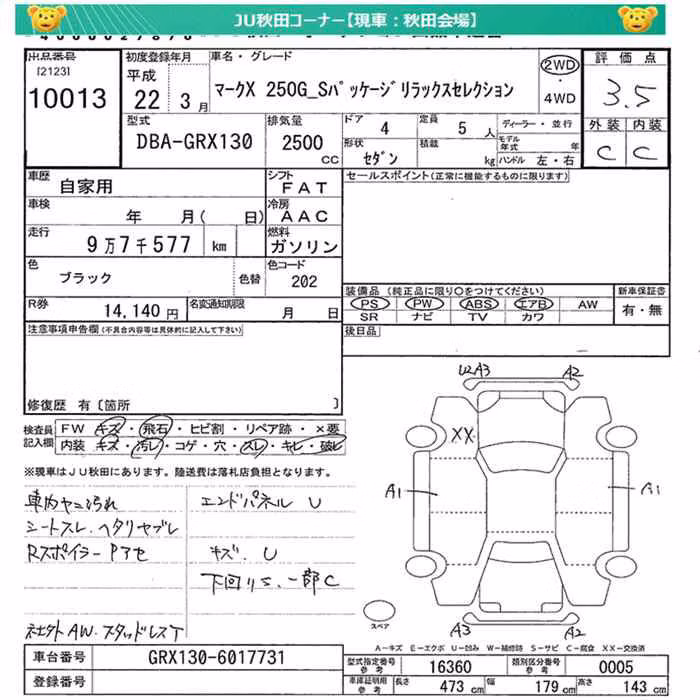 JU秋田コーナー【現車：秋田会場】
出品番号
[2123]
10013
初度登録年月
平成
22 3月
車名・グレード
マークX 250G_Sパッケージリラックスセレクション
2WD
・
4WD
評価点
3.5
外装 内装
C C
型式
DBA-GRX130
排気量
2500
CC
ドア 4
定員 5人
ディーラー・並行
モデル年式 年
形状 セダン
積載 kg
ハンドル 左・右
車歴 自家用
シフト FAT
セールスポイント(正常に機能するものに限ります)
車検 年 月( 日)
冷房 AAC
走行 9万7千577 km
燃料 ガソリン
色 ブラック
色替
色コード 202
装備品 (純正品に限り○をつけてください)
新車保証書
PS PW ABS エアB AW
有・無
SR ナビ TV カワ
R券 14,140円
名変通知期限 月 日
注意事項申告欄(不具合内容等は具体的に記入して下さい)
後日品
修復歴 有〔箇所 〕
検査員記入欄
FW キズ・飛石・ヒビ割・リペア跡・×要
内装 キズ・汚レ・コゲ・穴・スレ・キレ・破レ
※現車はJU秋田にあります。陸送費は落札店負担となります。
車内ヤニ汚れ
シートスレ、ヘタリヤブレ
RスポイラーPアセ
社外AW.スタッドレスT
エンドパネル U
キズ、U
下回りS、一部C
U2 A3 A2
XX
A1 A1
A3 A2
スペア
A－キズ E－エクボ U－凹み W－補修跡 S－サビ C－腐食 XX－交換済
車台番号 GRX130-6017731
登録番号
型式指定番号 参考 16360
類別区分番号 参考 0005
車庫証明用 参考 長さ 473 cm 幅 179 cm 高さ 143 cm